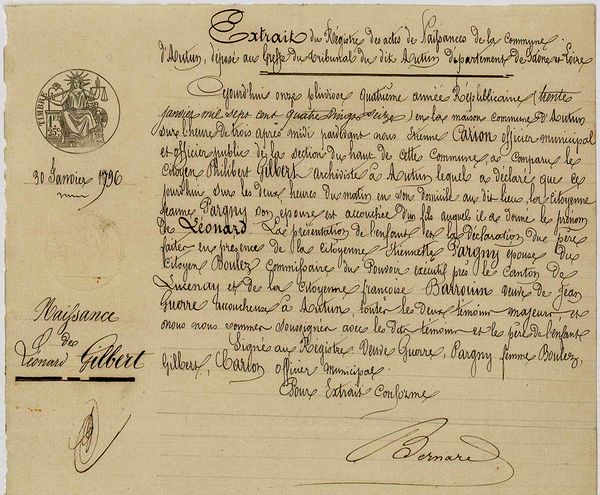 Extrait du Régistre des actes de Naissances de la commune
d'Autun, déposé au Greffe du tribunal du dit Autun département de Saône et Loire
TIMBRE
1F 25c
Ojourdhui onze pluviose quatrième année Républicaine (trente
janvier mil sept cent quatre vingt seize) en la maison commune d'Autun
sur l'heure de trois après midi pardevant nous Etienne Carion officier municipal
et officier public de la section du haut de cette Commune, a Comparu le
Citoyen Philibert Gilbert archiviste à Autun lequel a déclaré que ce
jourd'hui sur les deux heures du matin en son domicile au dit lieu, la citoyenne
Jeanne Pargny son epouse est accouchée d'un fils auquel il a donné le prénom
de Léonard. La présentation de l'enfant et la déclaration du père
faites en présence de la Citoyenne Etiennette Pargny épouse du
Citoyen Boulez Commissaire du Pouvoir executif près le Canton de
Lucenay et de la Citoyenne françoise Barrouin veuve de Jean
Guerre accoucheuse à Autun, toutes les deux témoins majeurs et
nous nous sommes soussignés avec les dits témoins et le père de l'enfant
Signé au Registre Veuve Guerre, Pargny femme Boulez,
Gilbert, Carion officier municipal.
Pour Extrait Conforme
Bernard
30 Janvier 1796
Naissance
de
Léonard Gilbert